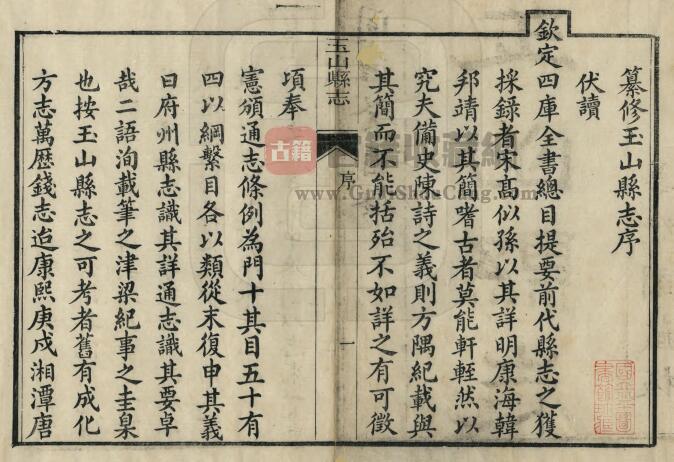 纂修玉山縣志序
伏讀
欽定四庫全書總目提要前代縣志之獲
採錄者宋高似孫以其詳明康海韓
邦靖以其簡嗜古者莫能軒輊然以
究夫備史陳詩之義則方隅紀載與
其簡而不能括殆不如詳之有可徵
玉山縣志
序
一
項奉
憲頒通志條例為門十其目五十有
四以綱繫目各以類從末復申其義
曰府州縣志識其詳通志識其要卓
哉二語洵載筆之津梁紀事之圭臬
也按玉山縣志之可考者舊有成化
方志萬歷錢志迨康熙庚戌湘潭唐
古籍
www.GujiShuCang.com